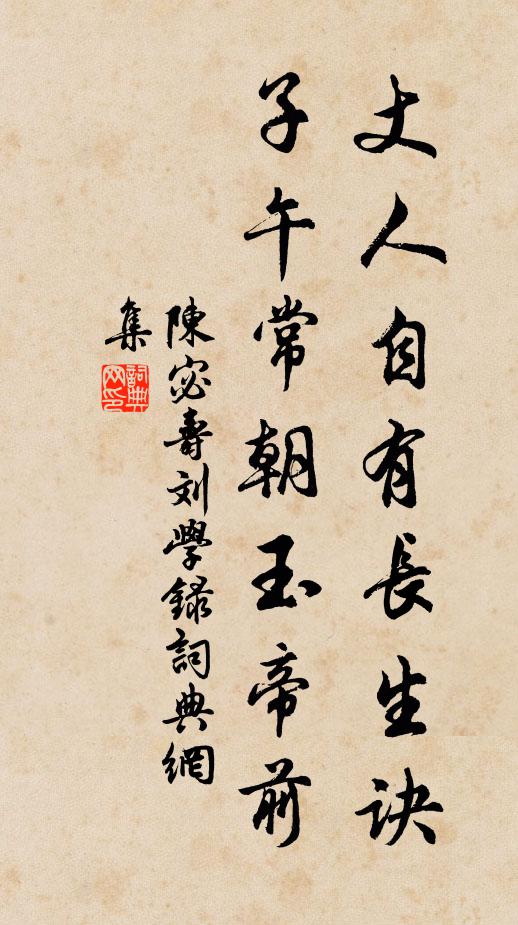 丈人自有長生訣
子午常朝玉帝前
陳宓壽刘學錄詞典網
集
詞典網印